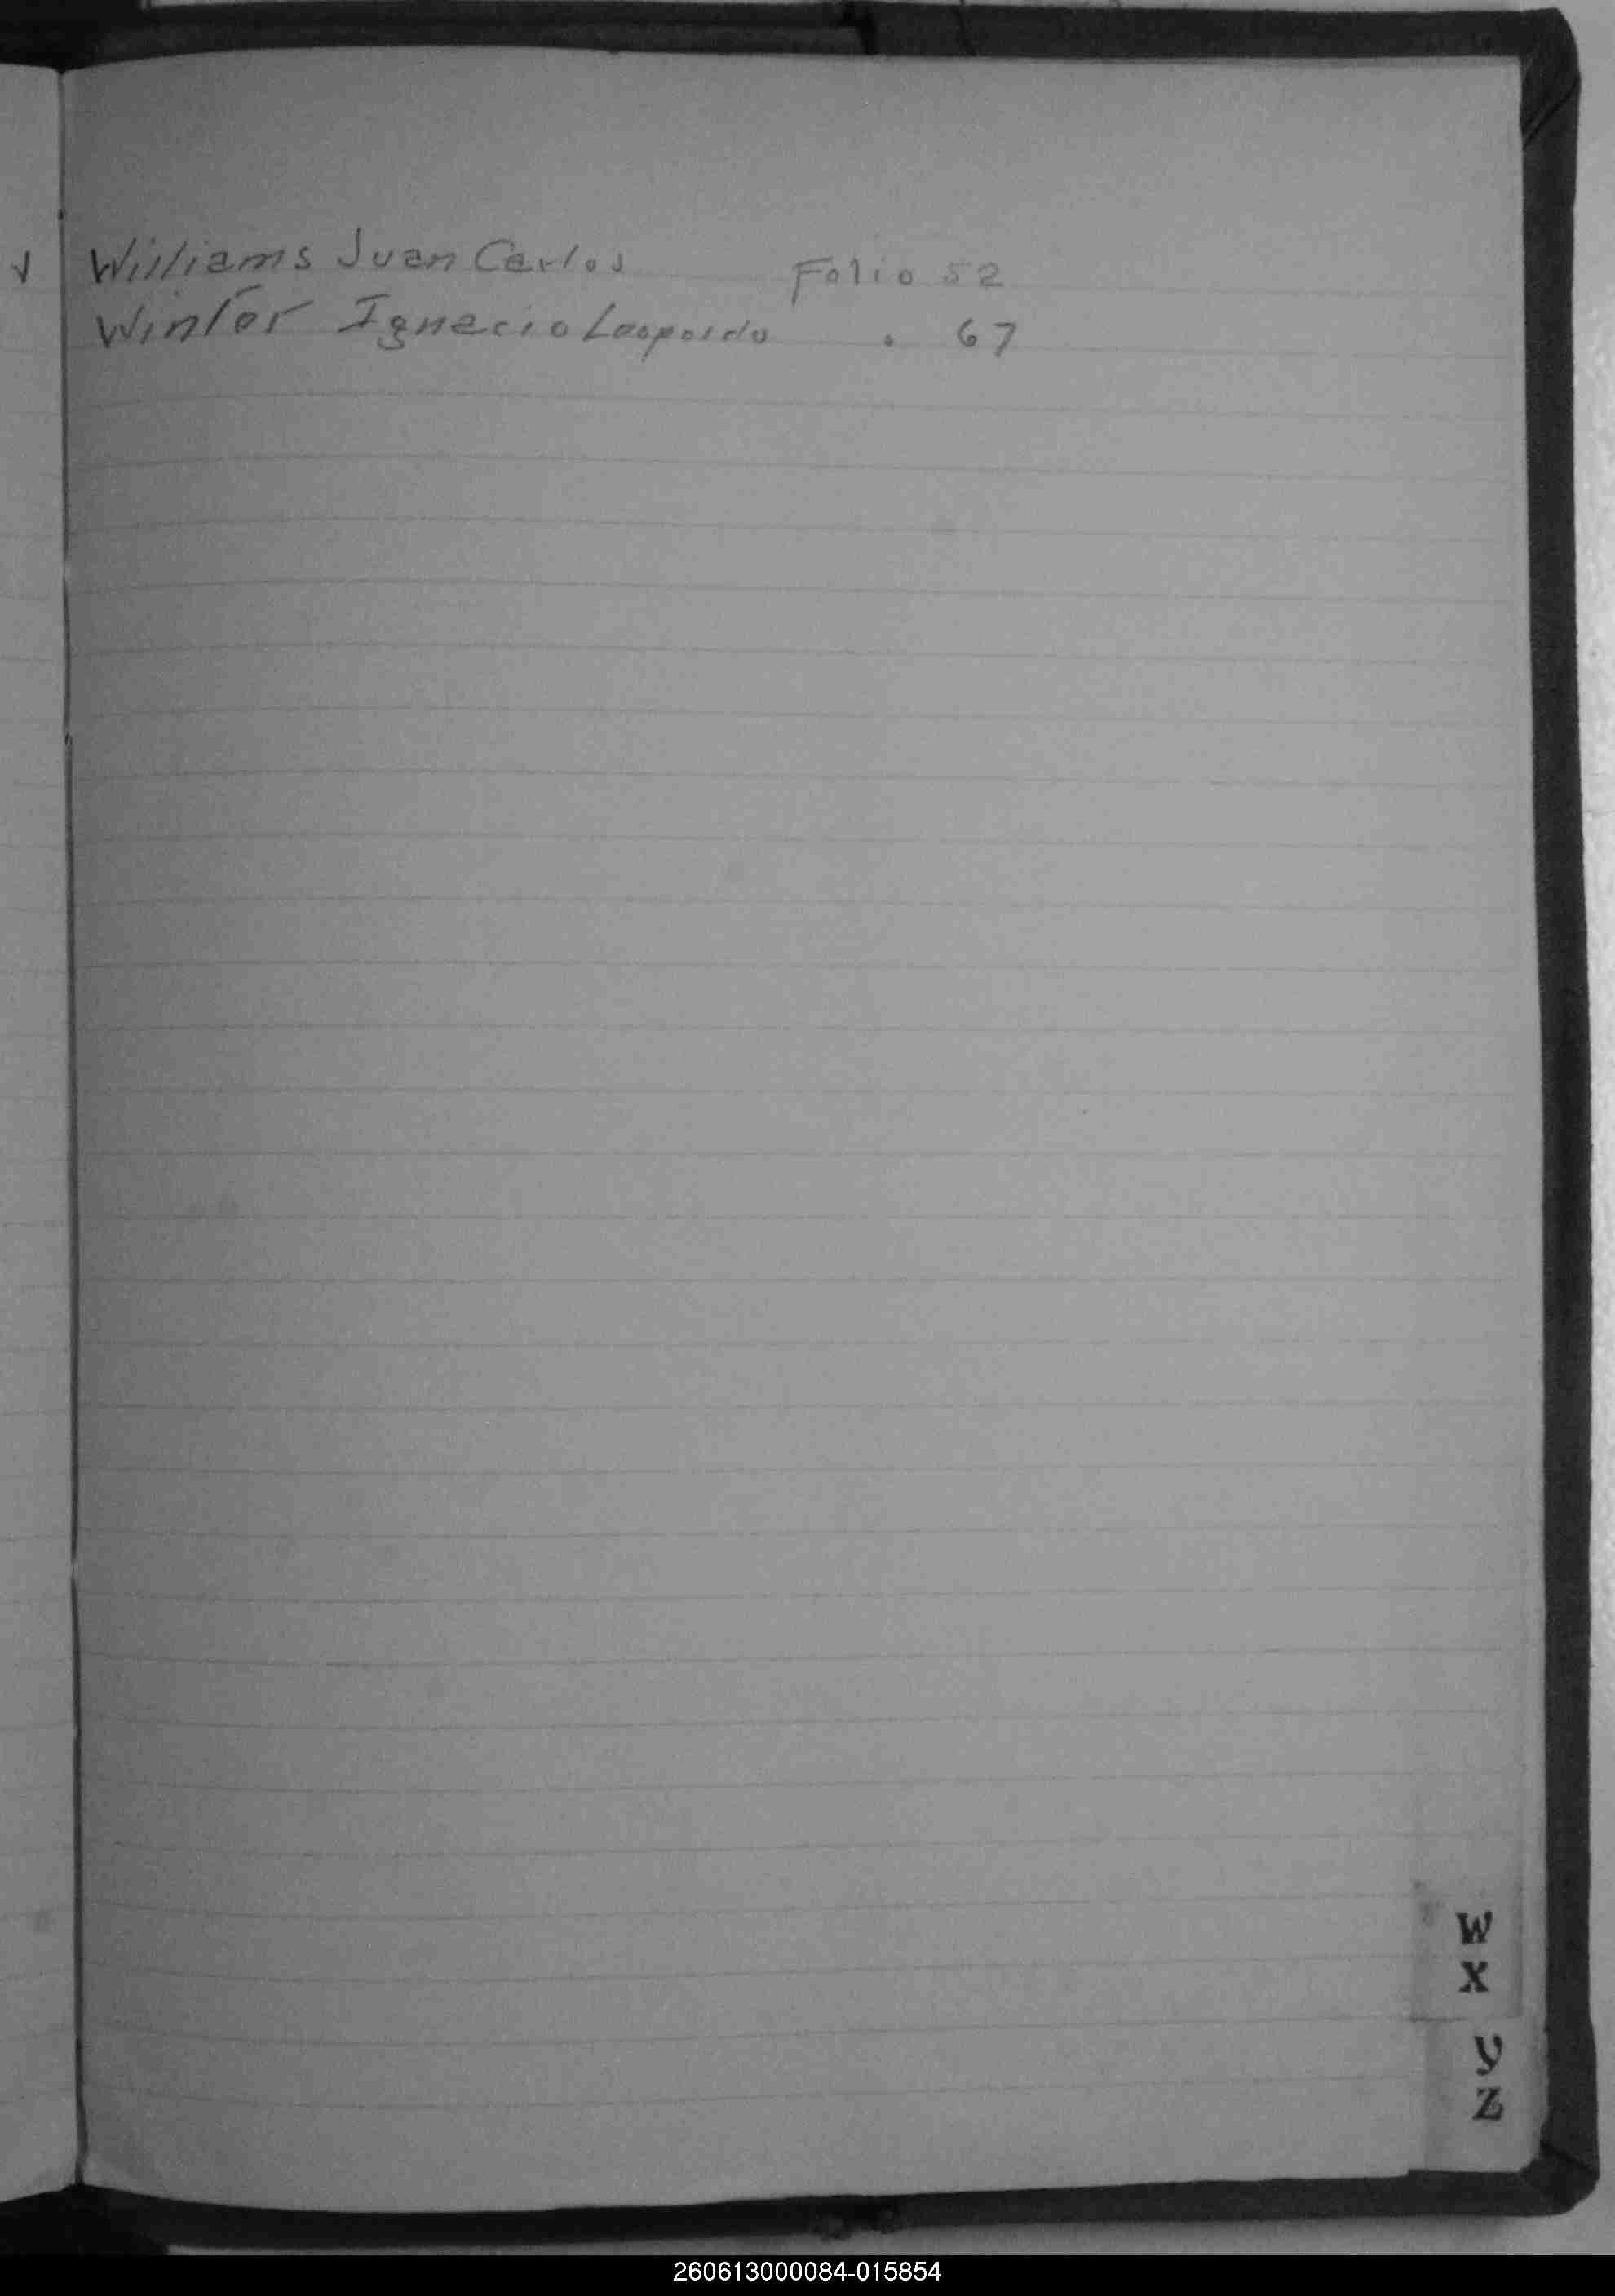 Williams Juan Carlos Folio 52
Winter Ignacio Leopoldo . 67
W
X
Y
Z
260613000084-015854